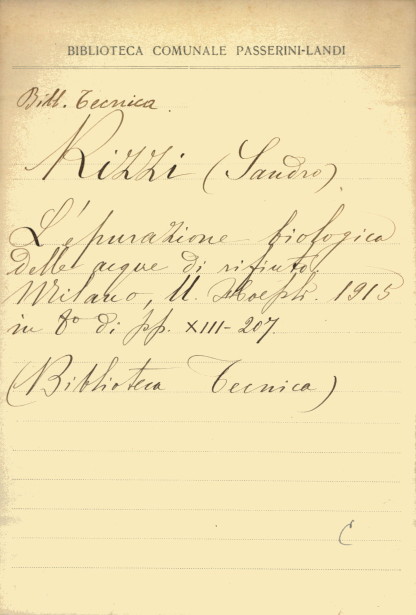 BIBLIOTECA COMUNALE PASSERINI-LANDI
Bibl. Tecnica.
Rizzi (Sandro)
L'épurazione biologica
delle acque di rifiuto.
Milano, U. Hoepli. 1915
in 8° di pp. XIII-207.
(Biblioteca Tecnica)
C